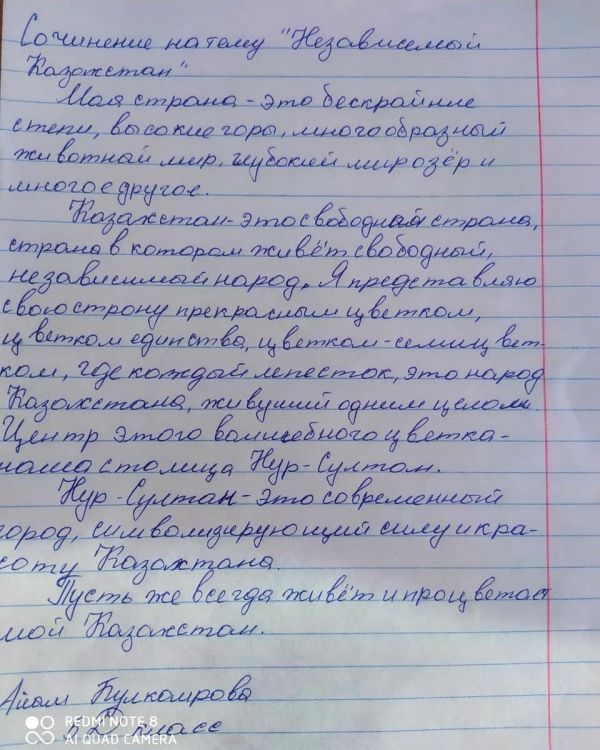 Сочинение на тему "Независемый
Казахстан"
Моя страна - это бескрайние
степи, высокие горы, многообразный
животнай мир, глубокий мир озёр и
многое другое.
Казахстан - это свободная страна,
страна в котором живёт свободный,
независимый народ. Я представляю
свою строну прекрасным цветком,
цветком единства, цветком - семицвет-
ком, где каждый лепесток, это народ
Казахстана, живущий одним целом.
Центр этого волшебного цветка -
наша столица Нур-Султан.
Нур-Султан - это современный
город, символизирующий силу и кра-
соту Казахтана.
Пусть же всегда живёт и процветает
мой Казахстан.
класс
REDMI NOTE 8
AI QUAD CAMERA